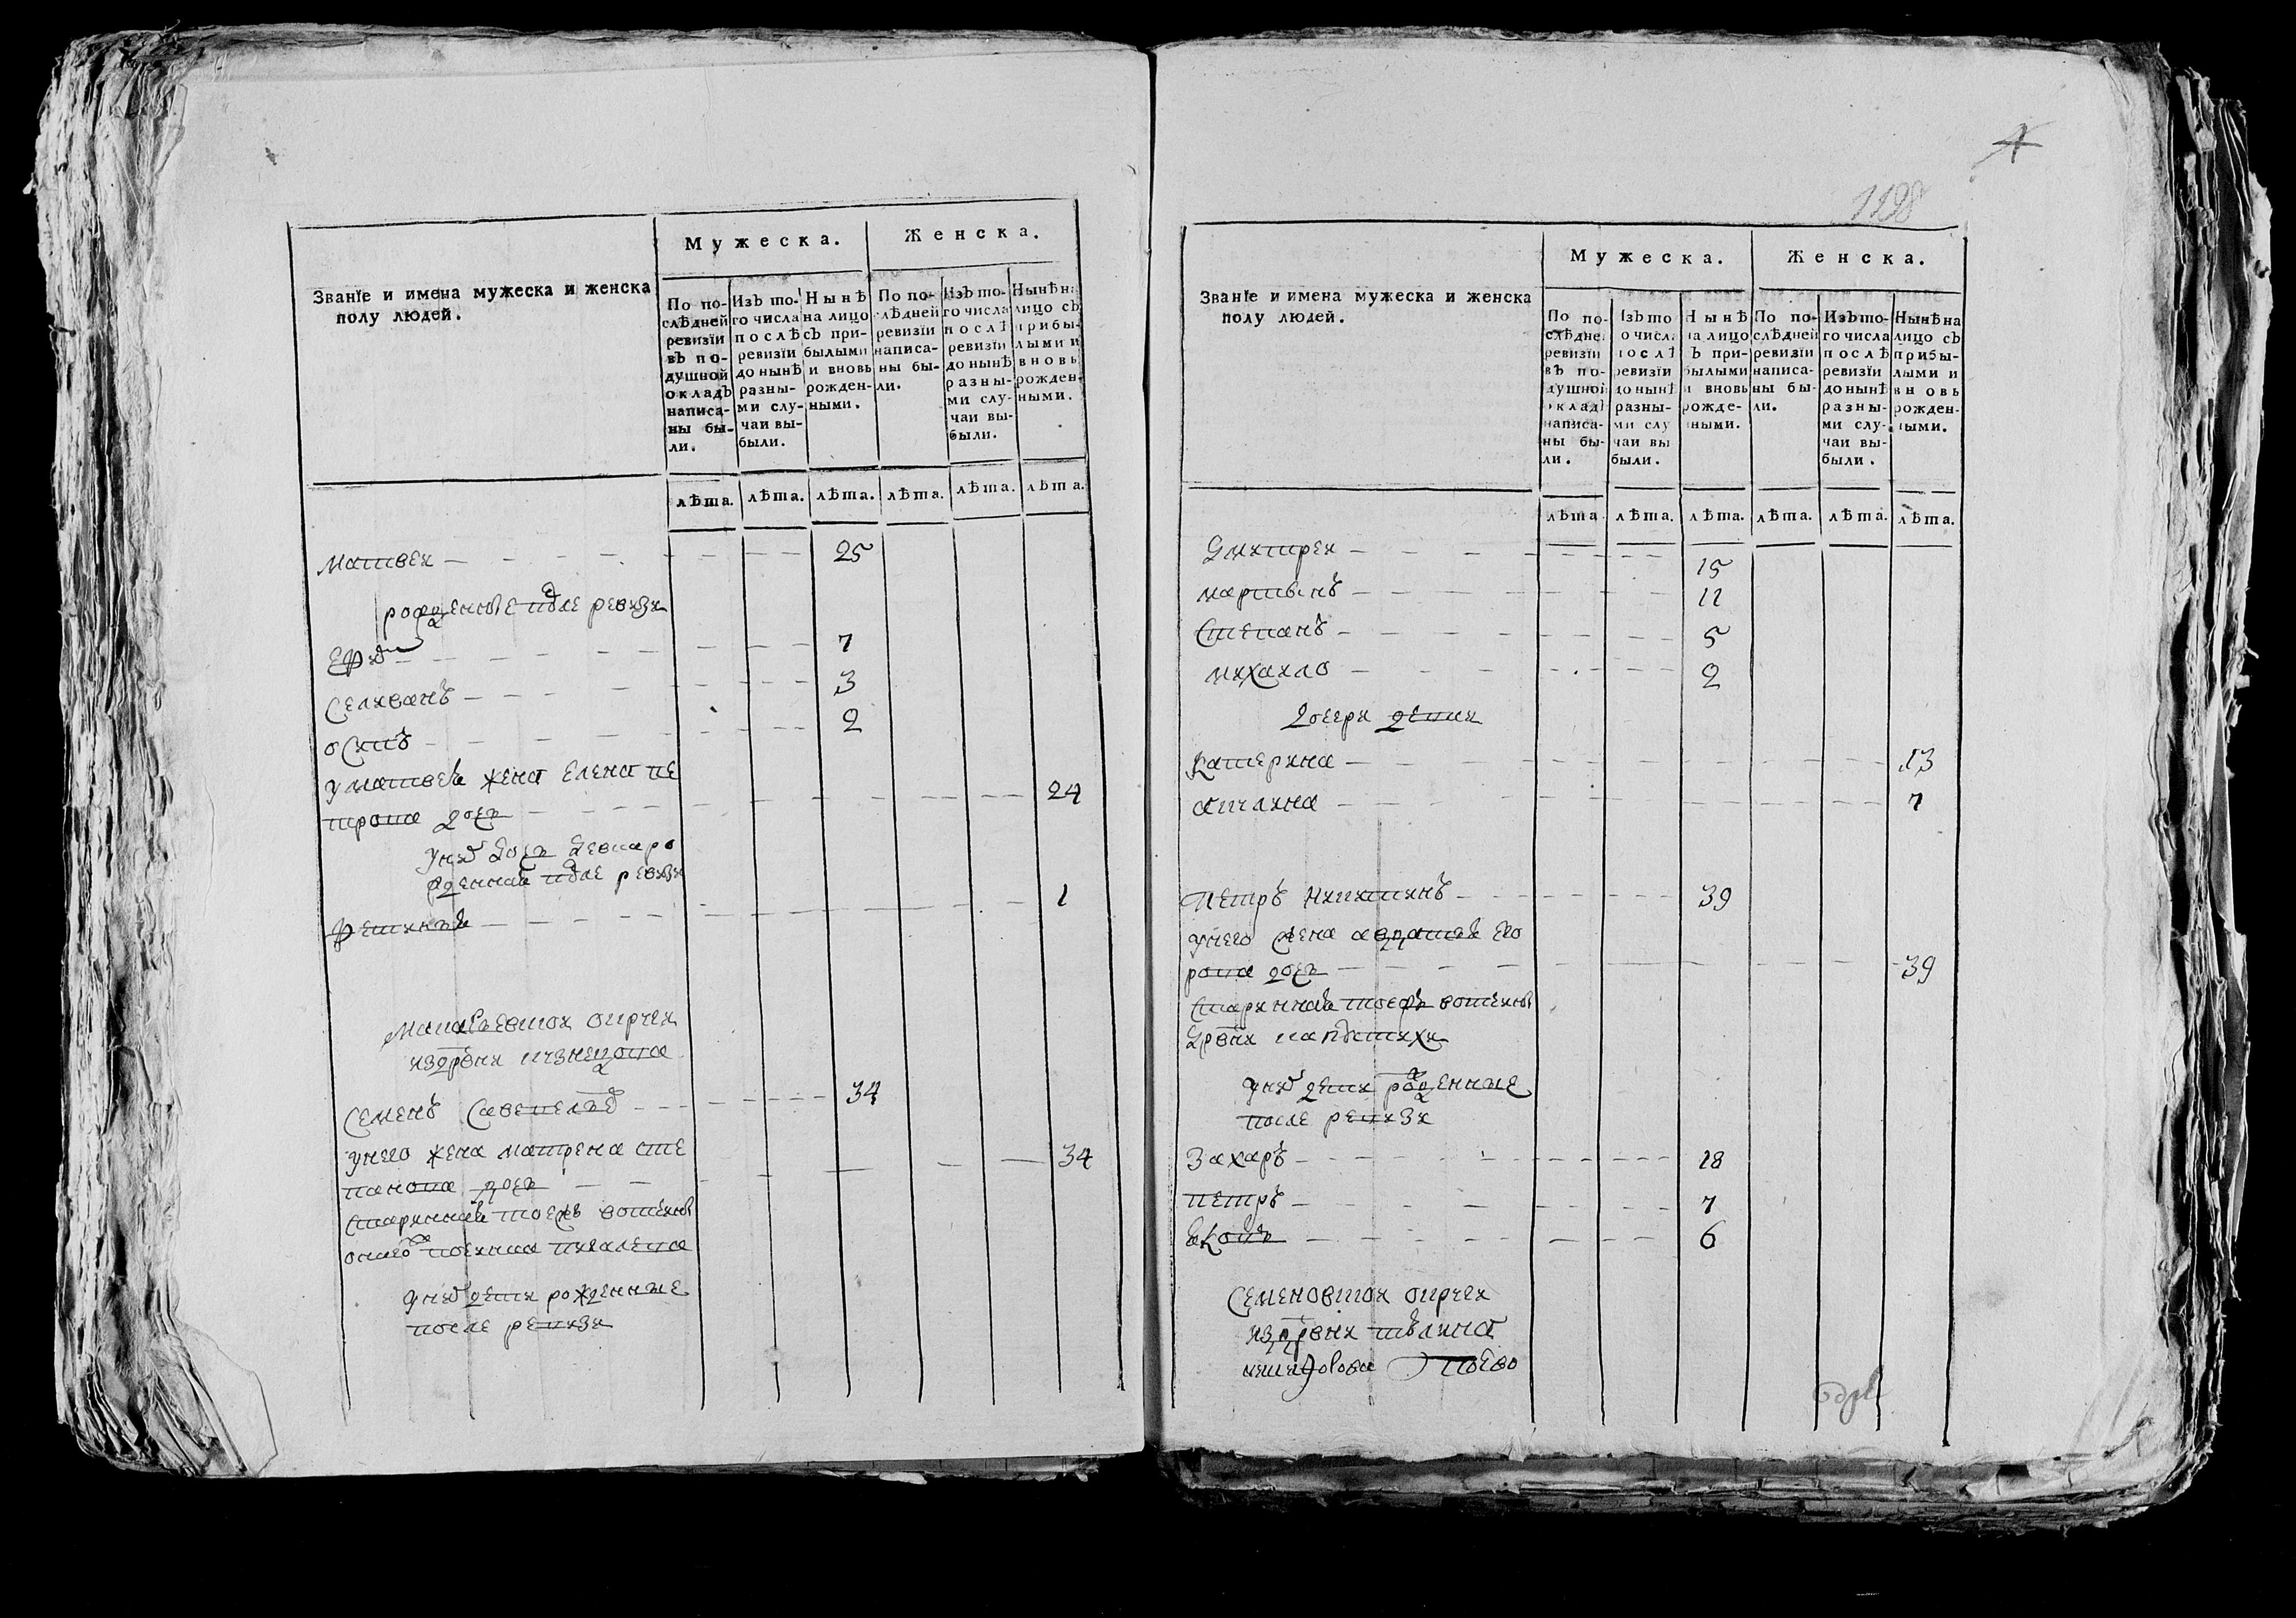 Мужеска.
Женска.
Званїе и имена мужеска и женска
полу людей.
По по-
слѣдней
ревизїи
въ по-
душной
окладъ
написа-
ны бы-
ли.
Изъ то-
го числа
послѣ
ревизїи
до нынѣ
разны-
ми слу-
чаи вы-
были.
Нынѣ
на лицо
съ при-
былыми
и вновь
рожден-
ными.
По по-
слѣдней
ревизїи
написа-
ны бы-
ли.
Изъ то-
го числа
послѣ
ревизїи
до нынѣ
разны-
ми слу-
чаи вы-
были.
Нынѣ на
лицо съ
прибы-
лыми и
вновь
рожден-
ными.
лѣта. лѣта. лѣта. лѣта. лѣта. лѣта.
Матвеи 25
рожденные после ревизи
Ефим 7
Селиванъ 3
осипъ 2
у матвея жена Елена пе
трова дочь 24
уних дочь девка ро
жденная после ревизи
Фетинья 1
из древни
Семенъ Савельев 34
унего жена матрена сте
панова дочь 34
старинная тоежъ вотчины
уних дети рожденные
после ревизи
1198
Мужеска.
Женска.
Званїе и имена мужеска и женска
полу людей.
По по-
слѣдне
ревизїи
въ по-
душной
оклад
написа-
ны бы-
ли.
Изъ то
го числа
послѣ
ревизїи
до нынѣ
разны-
ми слу
чаи вы
были.
Нынѣ
на лицо
съ при-
былыми
и вновь
рожде-
нными.
По по-
слѣдней
ревизїи
написа-
ны бы-
ли.
Изъ то-
го числа
послѣ
ревизїи
до нынѣ
разны-
ми слу-
чаи вы-
были.
Нынѣ на
лицо съ
прибы-
лыми и
вновь
рожден-
ными.
лѣта. лѣта. лѣта. лѣта. лѣта. лѣта.
Дмитреи 15
мартынъ 11
Степанъ 5
михаило 2
дочери дети
Катерина 13
акилина 7
Петръ Никитинъ 39
унего жена авдотья его
рова дочь 39
старинная тоежъ вотчины
древни
уних дети рожденные
после ревизи
Захаръ 18
петръ 7
яковъ 6
из древни